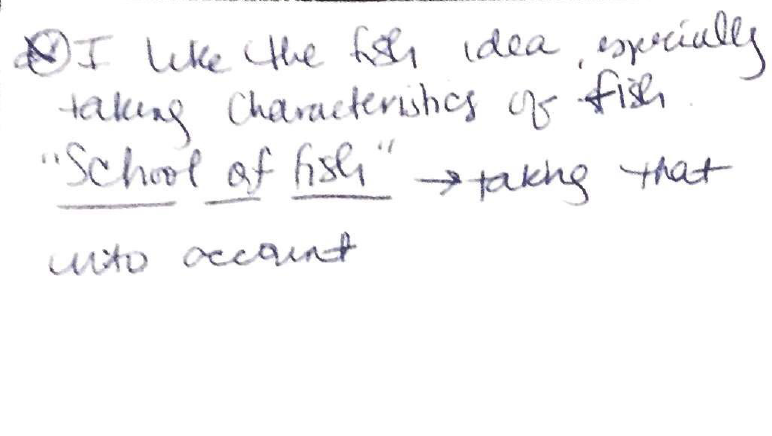 I like the fish idea, especially
taking characteristics of fish.
"School of fish" → taking that
into account